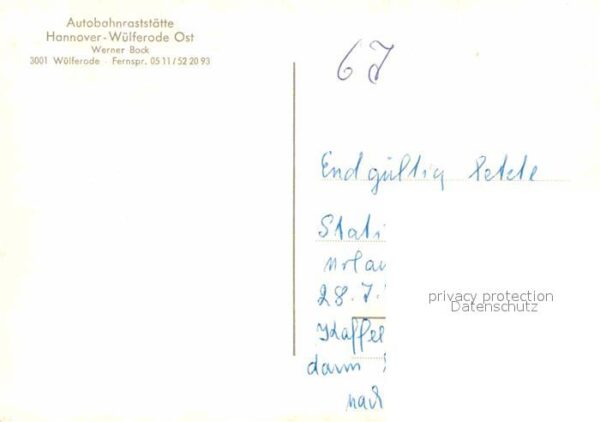 Autobahnraststätte
Hannover-Wülferode Ost
Werner Bock
3001 Wülferode · Fernspr. 05 11 / 52 20 93
67
Endgültig letzte
Stati
Urlau
28.7.
Kaffee
dann
nach
privacy protection
Datenschutz